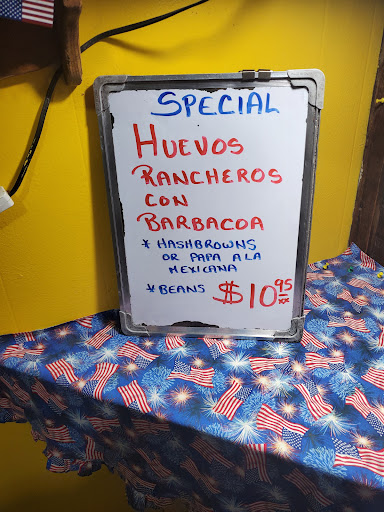 SPECIAL
HUEVOS
RANCHEROS
CON
BARBACOA
* HASHBROWNS
OR PAPA A LA
MEXICANA
* BEANS $10.95